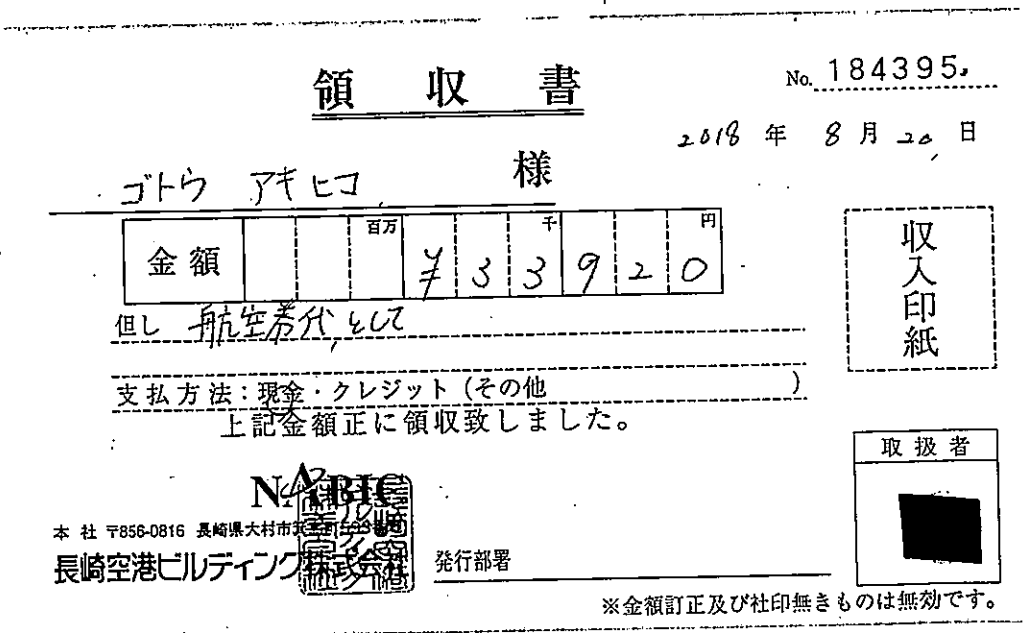 領収書
No. 184395
2018年 8月 20日
ゴトウ アキヒコ 様
金額 百万 千 円
¥33920
但し 航空券代として
支払方法:現金・クレジット(その他 )
上記金額正に領収致しました。
収入印紙
取扱者
NABIC
本社 〒856-0816 長崎県大村市箕島町593番地
長崎空港ビルディング株式会社
発行部署
※金額訂正及び社印無きものは無効です。